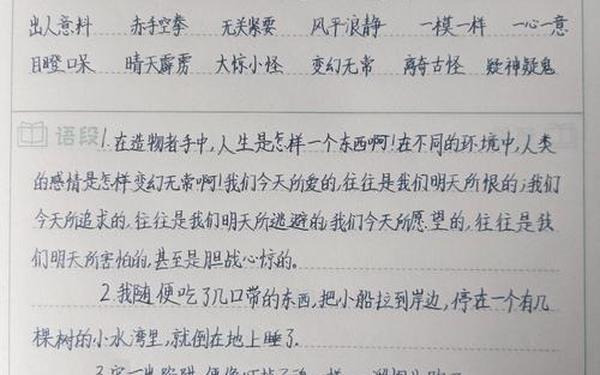 出人意料 赤手空拳 无关紧要 风平浪静 一模一样 一心一意
目瞪口呆 晴天霹雳 大惊小怪 变幻无常 离奇古怪 疑神疑鬼
语段 1.在造物者手中,人生是怎样一个东西啊!在不同的环境中,人类
的感情是怎样变幻无常啊!我们今天所爱的,往往是我们明天所恨的;我们
今天所追求的,往往是我们明天所逃避的;我们今天所愿望的,往往是我
们明天所害怕的,甚至是胆战心惊的。
2.我随便吃了几口带的东西,把小船拉到岸边,停在一个有几
棵树的小水湾里,就倒在地上睡了。